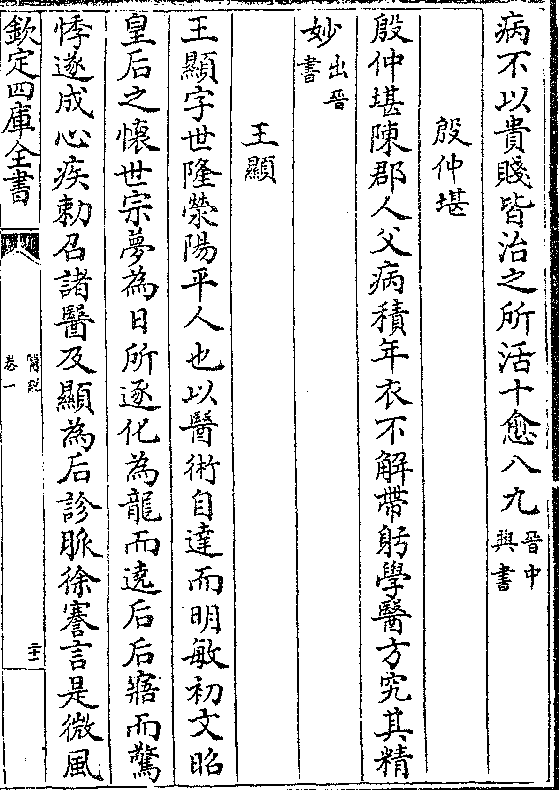 病不以貴賤皆治之所活十愈八九晉中
興書
殷仲堪
殷仲堪陳郡人父病積年衣不解帶躬學醫方究其精
妙出晉
書
王顯
王顯字世隆滎陽平人也以醫術自達而明敏初文昭
皇后之懷世宗夢為日所逐化為龍而遶后后寤而驚
悸遂成心疾勅召諸醫及顯為后診脈徐謇言是微風
欽定四庫全書
醫說
卷一
二十一